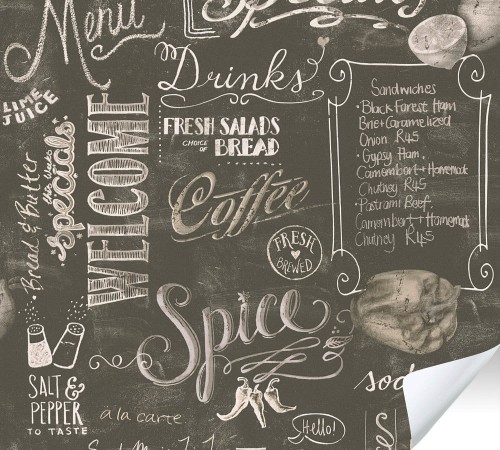 Menu
Specialty
LIME
JUICE
Drinks
FRESH SALADS
CHOICE
OF
BREAD
WELCOME
Bread & Butter
Specials
this week's
Coffee
FRESH
BREWED
Sandwiches
·Black Forest Ham
Brie + Caramelized
Onion R45
·Gypsy Ham,
Camembert + Homemade
Chutney R45
·Pastrami Beef,
Camembert + Homemade
Chutney R45
Spice
SALT &
PEPPER
TO TASTE
à la carte
Hello!
sod